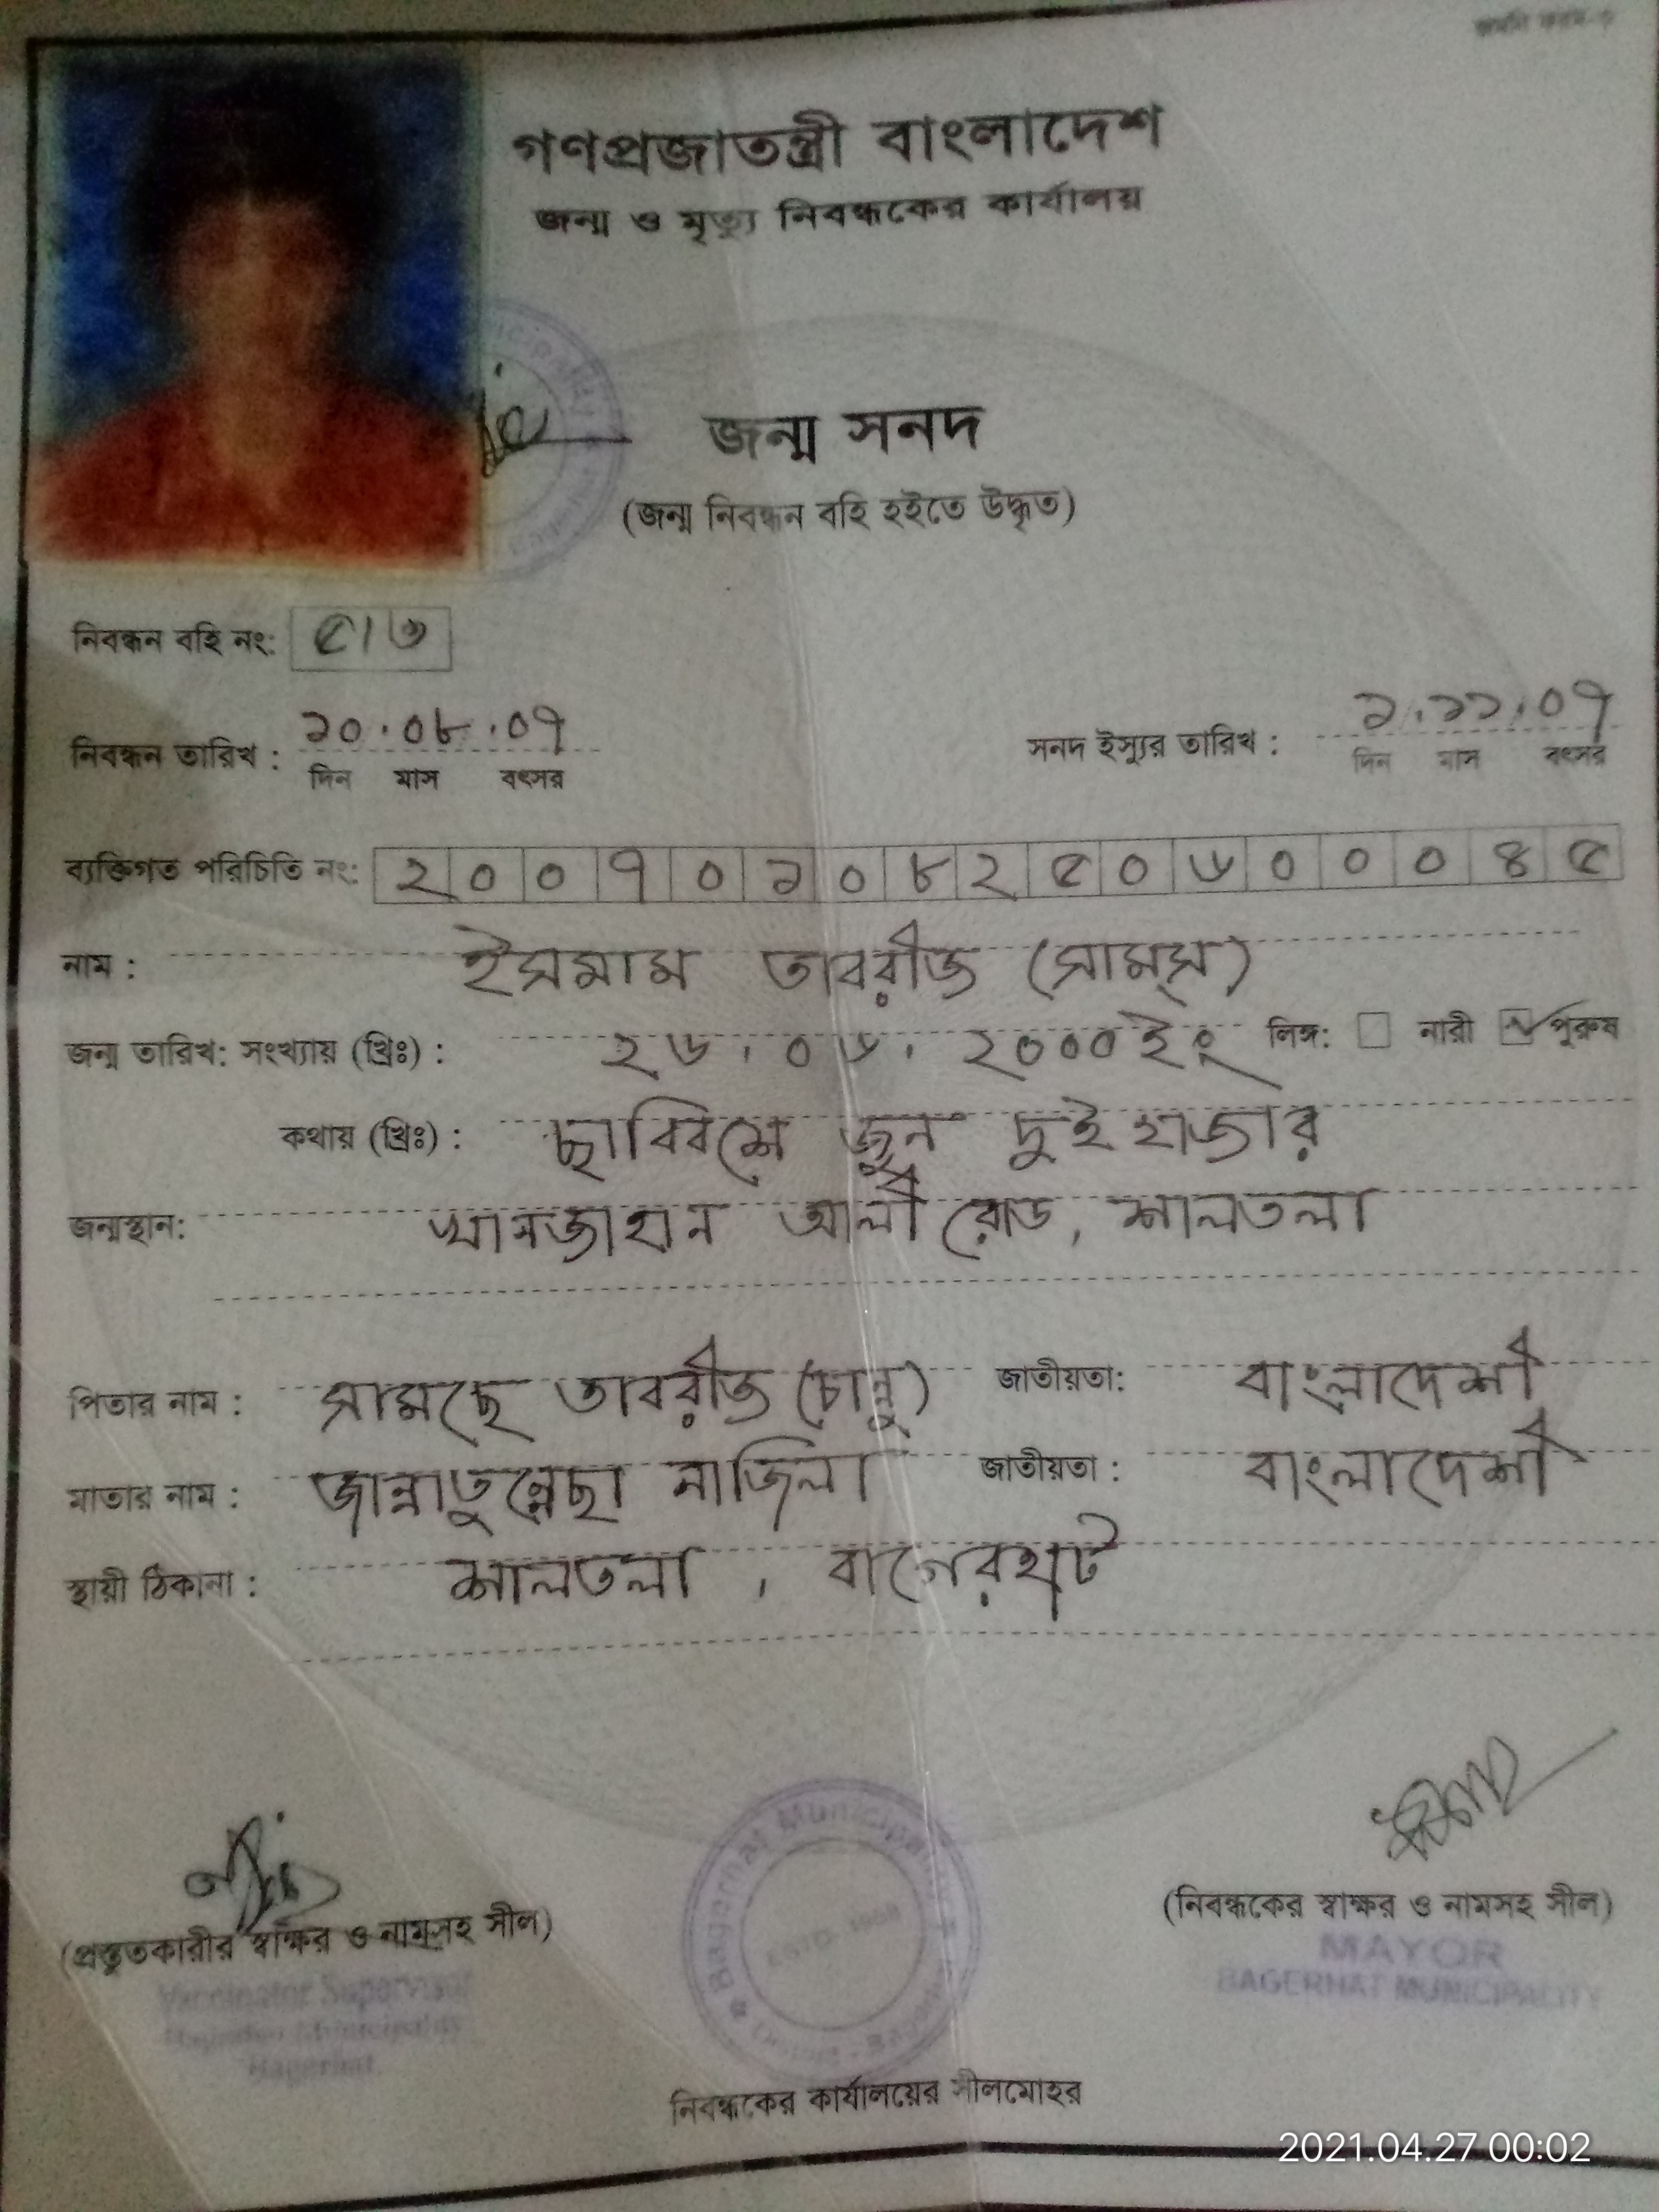 গণপ্রজাতন্ত্রী বাংলাদেশ
জন্ম ও মৃত্যু নিবন্ধকের কার্যালয়
জন্ম সনদ
(জন্ম নিবন্ধন বহি হইতে উদ্ধৃত)
নিবন্ধন বহি নং: ৫/৬
নিবন্ধন তারিখ : ১০.০৮.০৭ সনদ ইস্যুর তারিখ : ১.১১.০৭
দিন মাস বৎসর দিন মাস বৎসর
ব্যক্তিগত পরিচিতি নং: ২০০৭০১০৮২৫০৬০০০৪৫
নাম : ইসমাম তাবরীজ (সামস্)
জন্ম তারিখ: সংখ্যায় (খ্রিঃ) : ২৬.০৬.২০০০ইং লিঙ্গ: নারী পুরুষ
কথায় (খ্রিঃ) : ছাব্বিশে জুন দুই হাজার
জন্মস্থান: খানজাহান আলী রোড, শালতলা
পিতার নাম : সামছে তাবরীজ (চান্নু) জাতীয়তা: বাংলাদেশী
মাতার নাম : জান্নাতুন্নেছা নাজিলা জাতীয়তা : বাংলাদেশী
স্থায়ী ঠিকানা : শালতলা, বাগেরহাট
(প্রস্তুতকারীর স্বাক্ষর ও নামসহ সীল) (নিবন্ধকের স্বাক্ষর ও নামসহ সীল)
Vaccinator Supervisor MAYOR
Municipality BAGERHAT MUNICIPALITY
Bagerhat.
Bagerhat Municipality
নিবন্ধকের কার্যালয়ের সীলমোহর
2021.04.27 00:02